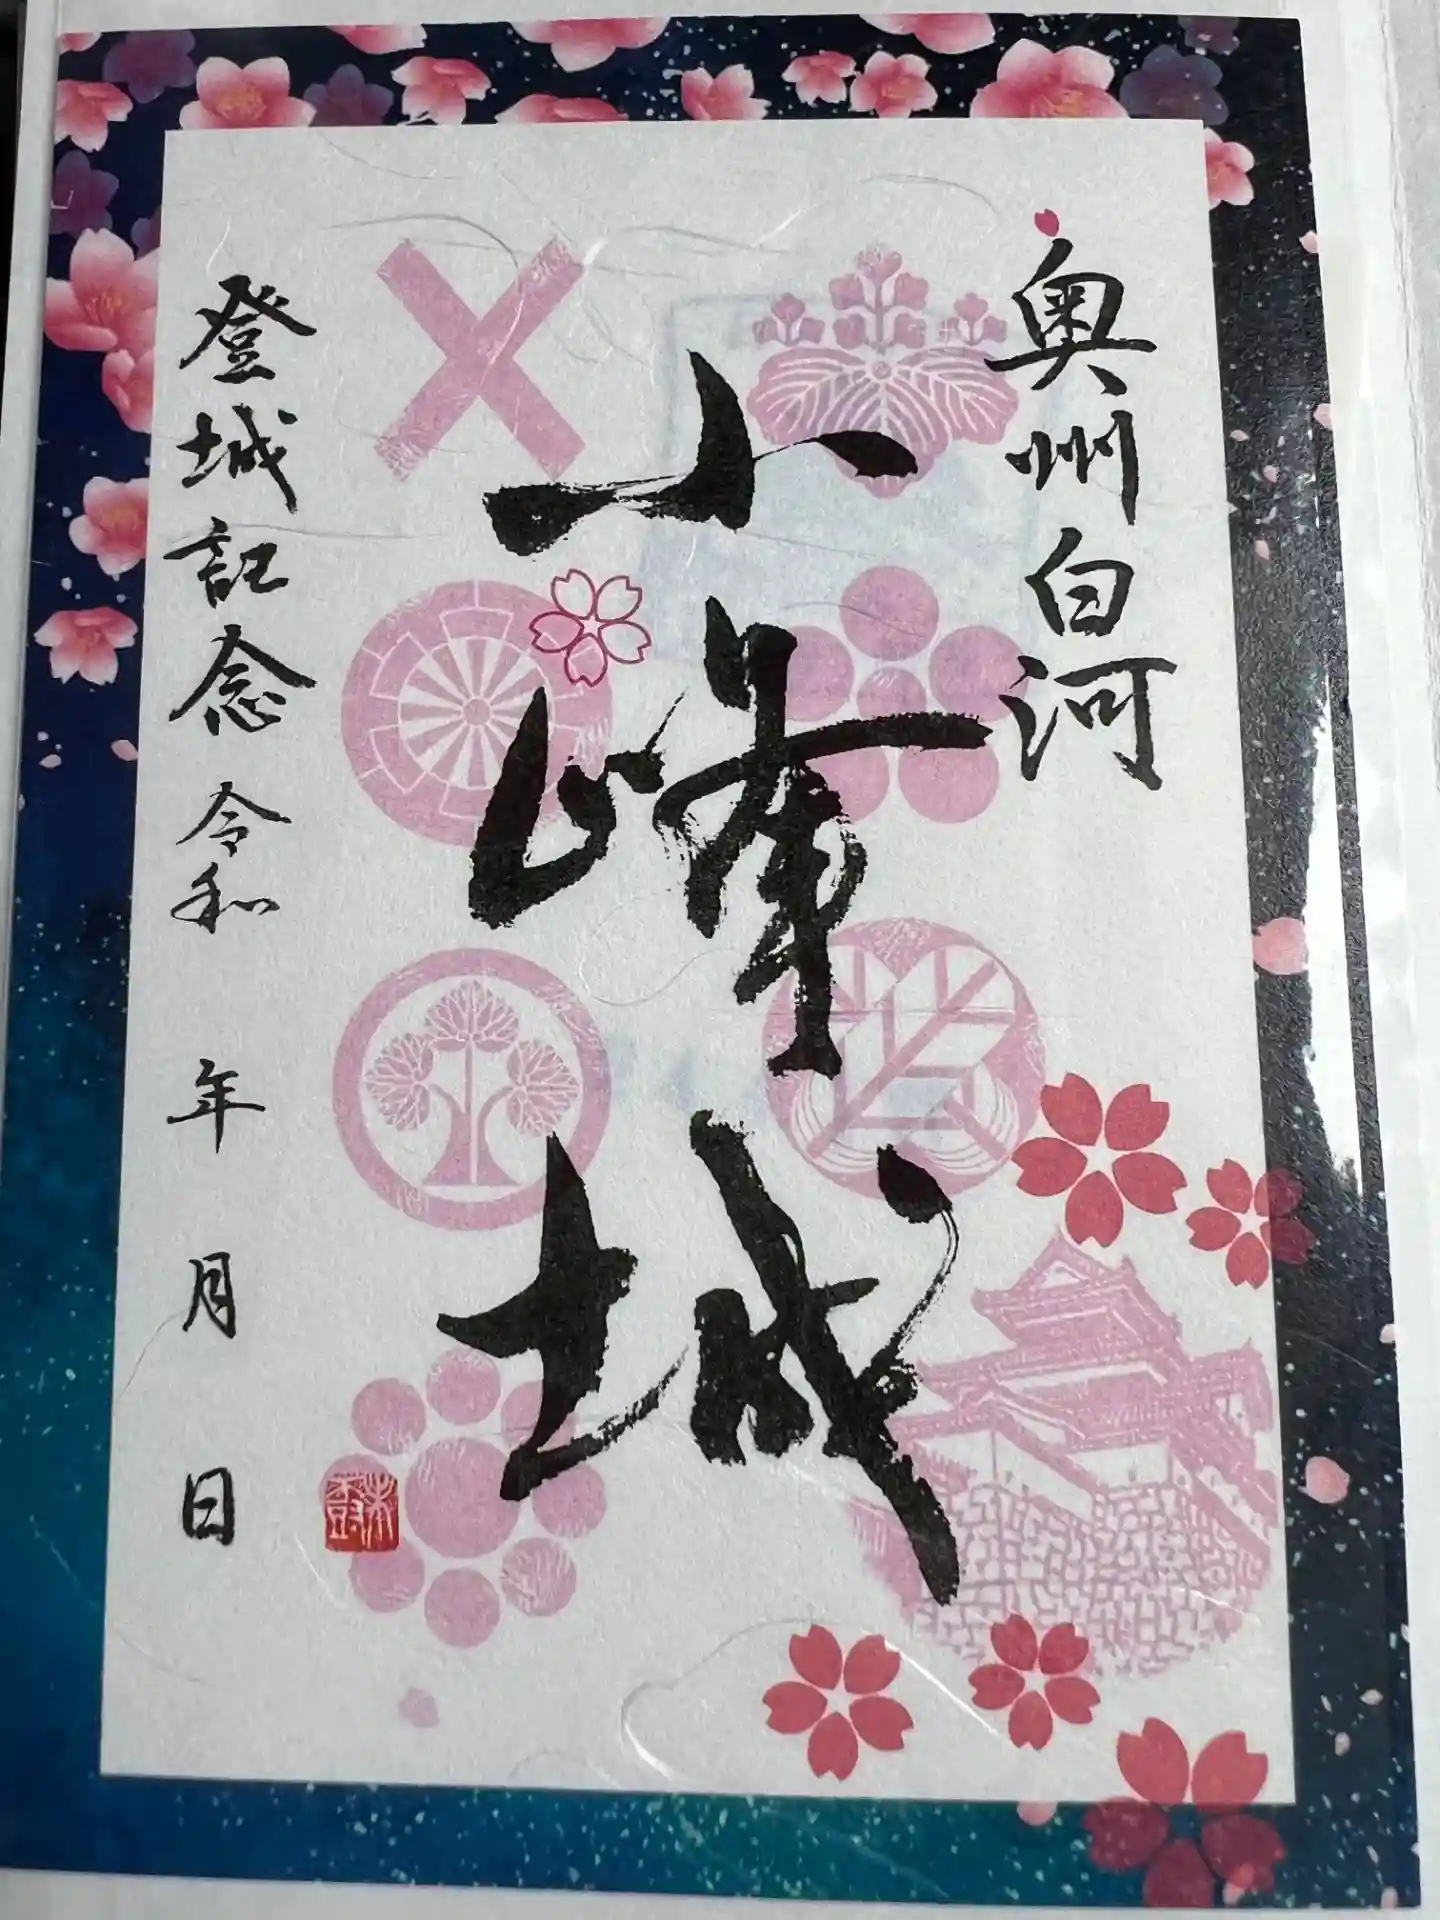 奥州白河
小峰城
登城記念 令和 年 月 日